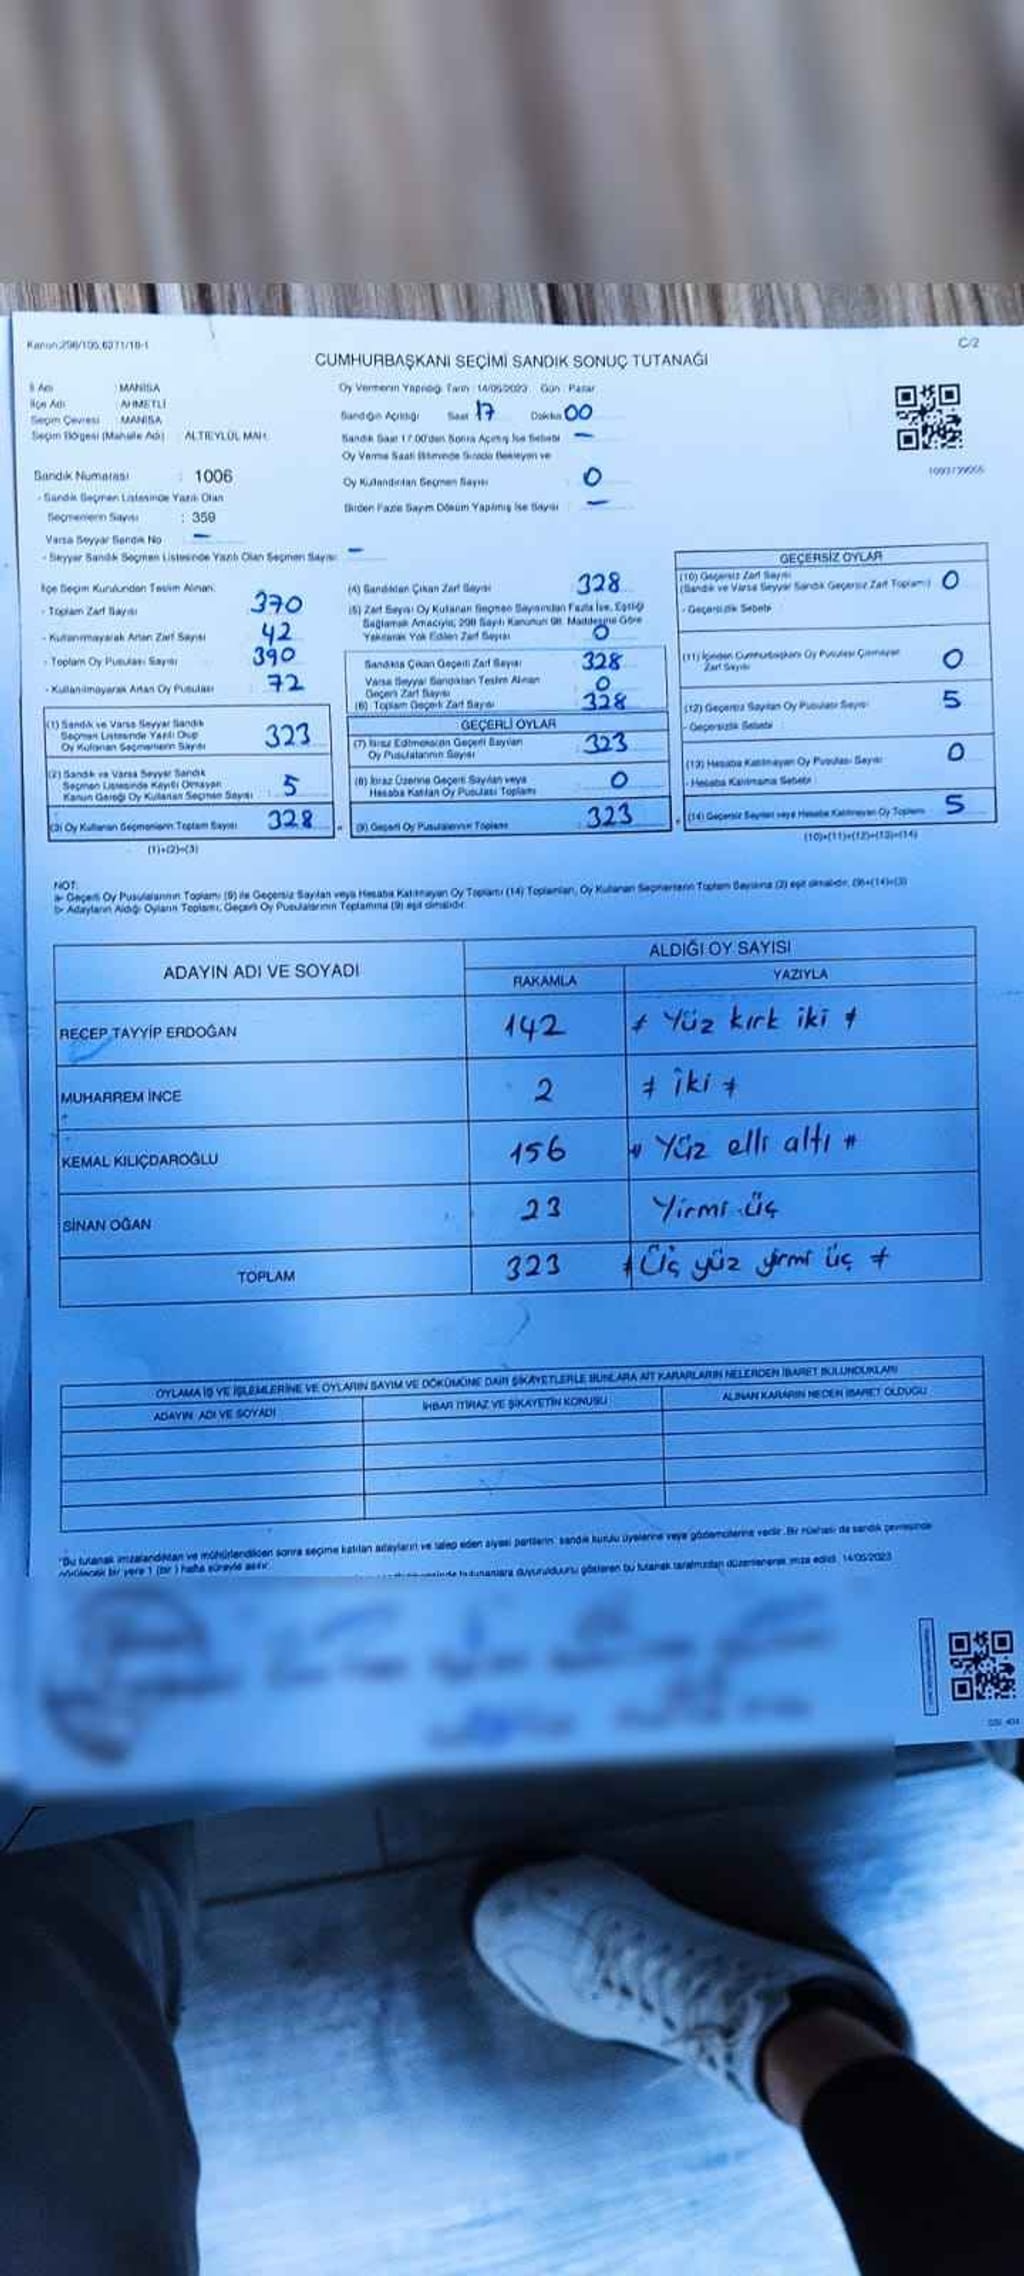 Kanun:298/105,6271/18-1
C/2
CUMHURBAŞKANI SEÇİMİ SANDIK SONUÇ TUTANAĞI
İl Adı : MANİSA
İlçe Adı : AHMETLİ
Seçim Çevresi : MANİSA
Seçim Bölgesi (Mahalle Adı) : ALTIEYLÜL MAH.
Oy Vermenin Yapıldığı Tarih : 14/05/2023 Gün : Pazar
Sandığın Açıldığı Saat 17 Dakika 00
Sandık Saat 17.00'den Sonra Açılmış İse Sebebi —
Oy Verme Saati Bitiminde Sırada Bekleyen ve
Oy Kullandırılan Seçmen Sayısı : 0
Birden Fazla Sayım Döküm Yapılmış İse Sayısı : —
Sandık Numarası : 1006
- Sandık Seçmen Listesinde Yazılı Olan
Seçmenlerin Sayısı : 359
Varsa Seyyar Sandık No —
- Seyyar Sandık Seçmen Listesinde Yazılı Olan Seçmen Sayısı: —
İlçe Seçim Kurulundan Teslim Alınan:
- Toplam Zarf Sayısı 370
- Kullanılmayarak Artan Zarf Sayısı 42
- Toplam Oy Pusulası Sayısı 390
- Kullanılmayarak Artan Oy Pusulası 72
(1) Sandık ve Varsa Seyyar Sandık
Seçmen Listesinde Yazılı Olup
Oy Kullanan Seçmenlerin Sayısı 323
(2) Sandık ve Varsa Seyyar Sandık
Seçmen Listesinde Kayıtlı Olmayan
Kanun Gereği Oy Kullanan Seçmen Sayısı : 5
(3) Oy Kullanan Seçmenlerin Toplam Sayısı 328
(1)+(2)=(3)
(4) Sandıktan Çıkan Zarf Sayısı 328
(5) Zarf Sayısı Oy Kullanan Seçmen Sayısından Fazla İse, Eşitliği
Sağlamak Amacıyla, 298 Sayılı Kanunun 98. Maddesine Göre
Yakılarak Yok Edilen Zarf Sayısı 0
Sandıkta Çıkan Geçerli Zarf Sayısı 328
Varsa Seyyar Sandıktan Teslim Alınan
Geçerli Zarf Sayısı 0
(6) Toplam Geçerli Zarf Sayısı 328
GEÇERLİ OYLAR
(7) İtiraz Edilmeksizin Geçerli Sayılan
Oy Pusulalarının Sayısı 323
(8) İtiraz Üzerine Geçerli Sayılan veya
Hesaba Katılan Oy Pusulası Toplamı 0
(9) Geçerli Oy Pusulalarının Toplamı 323
GEÇERSİZ OYLAR
(10) Geçersiz Zarf Sayısı
(Sandık ve Varsa Seyyar Sandık Geçersiz Zarf Toplamı) 0
- Geçersizlik Sebebi
(11) İçinden Cumhurbaşkanı Oy Pusulası Çıkmayan
Zarf Sayısı 0
(12) Geçersiz Sayılan Oy Pusulası Sayısı 5
- Geçersizlik Sebebi
(13) Hesaba Katılmayan Oy Pusulası Sayısı 0
- Hesaba Katılmama Sebebi
(14) Geçersiz Sayılan veya Hesaba Katılmayan Oy Toplamı 5
(10)+(11)+(12)+(13)=(14)
NOT:
a- Geçerli Oy Pusulalarının Toplamı (9) ile Geçersiz Sayılan veya Hesaba Katılmayan Oy Toplamı (14) Toplamları, Oy Kullanan Seçmenlerin Toplam Sayısına (3) eşit olmalıdır. (9)+(14)=(3)
b- Adayların Aldığı Oyların Toplamı, Geçerli Oy Pusulalarının Toplamına (9) eşit olmalıdır.
ADAYIN ADI VE SOYADI
ALDIĞI OY SAYISI
RAKAMLA YAZIYLA
RECEP TAYYİP ERDOĞAN 142 Yüz kırk iki
MUHARREM İNCE 2 iki
KEMAL KILIÇDAROĞLU 156 Yüz elli altı
SİNAN OĞAN 23 Yirmi üç
TOPLAM 323 Üç yüz yirmi üç
OYLAMA İŞ VE İŞLEMLERİNE VE OYLARIN SAYIM VE DÖKÜMÜNE DAİR ŞİKAYETLERLE BUNLARA AİT KARARLARIN NELERDEN İBARET BULUNDUKLARI
ADAYIN ADI VE SOYADI İHBAR İTİRAZ VE ŞİKAYETİN KONUSU ALINAN KARARIN NEDEN İBARET OLDUĞU
*Bu tutanak imzalandıktan ve mühürlendikten sonra seçime katılan adayların ve talep eden siyasi partilerin, sandık kurulu üyelerine veya gözlemcilerine verilir. Bir nüshası da sandık çevresinde
görülecek bir yere 1 (bir) hafta süreyle asılır.
duyurulduğu gösteren bu tutanak tarafımızdan düzenlenerek imza edildi. 14/05/2023